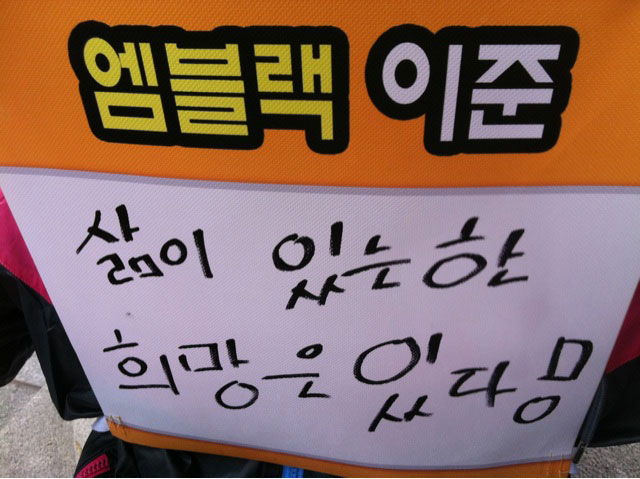 엠블랙 이준
삶이 있는한
희망은 있다밍